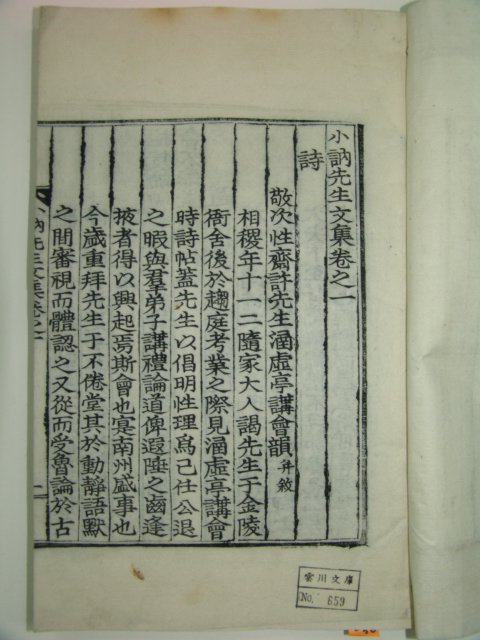 小訥先生文集卷之一
詩
敬次性齋許先生涵虛亭講會韻 并敘
相稷年十一二隨家大人謁先生于金陵
衙舍後於趨庭考業之際見涵虛亭講會
時詩帖蓋先生以倡明性理爲己任公退
之暇與羣弟子講禮論道俾遐陲之齒逢
掖者得以興起焉斯會也寔南州盛事也
今歲重拜先生于不倦堂其於動靜語默
之間審視而體認之又從而受魯論於古
小訥先生文集卷之一
一
雲川文庫
No. 659